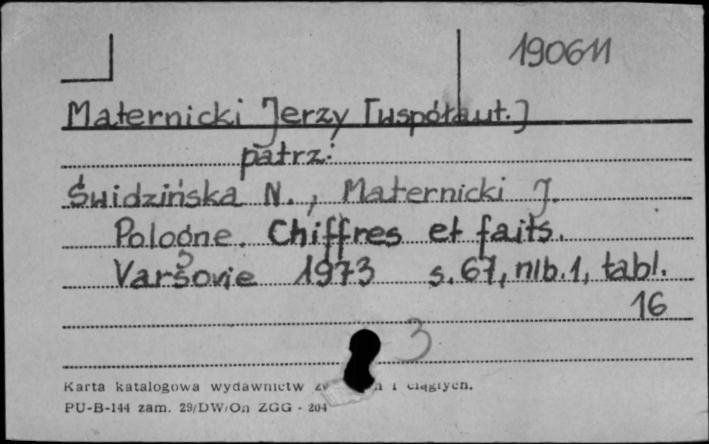 190611
Maternicki Jerzy [współaut.]
patrz:
Świdzińska N., Maternicki J.
Pologne. Chiffres et faits.
Varsovie 1973 s. 67, nlb. 1, tabl.
16
3
Karta katalogowa wydawnictw i ciągłych.
PU-B-144 zam. 29/DW/On ZGG - 204